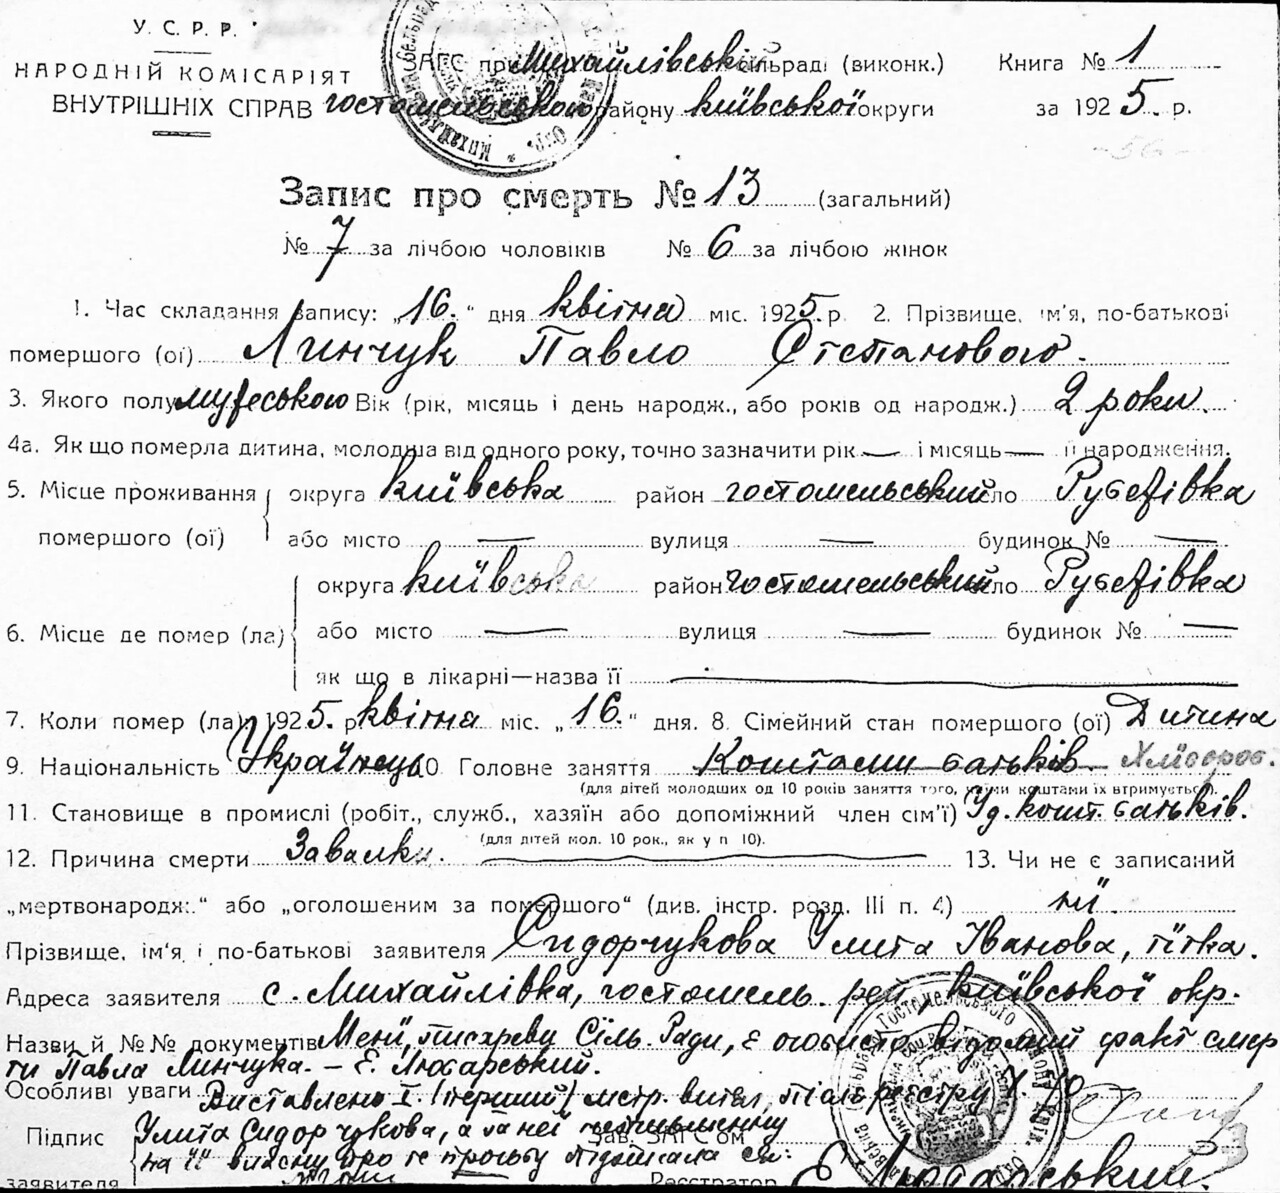 У. С. Р. Р.
НАРОДНІЙ КОМІСАРІЯТ
ВНУТРІШНІХ СПРАВ
ЗАГС при Михайлівській сільраді (виконк.) Книга № 1
гостомельського району київської округи за 1925. р.
-56-
Запис про смерть № 13 (загальний)
№ 7 за лічбою чоловіків № 6 за лічбою жінок
1. Час складання запису: „16." дня квітня міс. 1925. р. 2. Прізвище, ім'я, по-батькові
помершого (ої) Линчук Павло Степанового.
3. Якого полу мужеського Вік (рік, місяць і день народж., або років од народж.) 2 роки.
4а. Як що померла дитина, молодша від одного року, точно зазначити рік — і місяць — її народження.
5. Місце проживання округа київська район гостомельський село Рубежівка
помершого (ої) або місто — вулиця — будинок № —
округа київська район гостомельський село Рубежівка
6. Місце де помер (ла) або місто — вулиця — будинок № —
як що в лікарні—назва її —
7. Коли помер (ла) 1925. р. квітня міс. „16." дня. 8. Сімейний стан помершого (ої) Дитина
9. Національність Українець 10. Головне заняття Коштами батьків Хлібороб.
(для дітей молодших од 10 років заняття того, чиїми коштами їх втримується).
11. Становище в промислі (робіт., служб., хазяїн або допоміжний член сім'ї) Уд. кошт. батьків.
(для дітей мол. 10 рок., як у п 10).
12. Причина смерти Завалки. — 13. Чи не є записаний
„мертвонародж." або „оголошеним за помершого" (див. інстр. розд. III п. 4) ні.
Прізвище, ім'я і по-батькові заявителя Сидорчукова Улита Іванова, тітка.
Адреса заявителя с. Михайлівка, гостомель. рай. київської окр.
Назви й №№ документів Мені, писареву Сіль Ради, є особисто відомий факт смер
ти Павла Линчука. – Е. Люхарський.
Особливі уваги Виставлено I (перший) витяг,
Підпис Улита Сидорчукова, а за неї неписьменну Зав. ЗАГС'ом
на її власну про те просьбу підписала ся:
заявителя Реєстратор Е Люхарський.